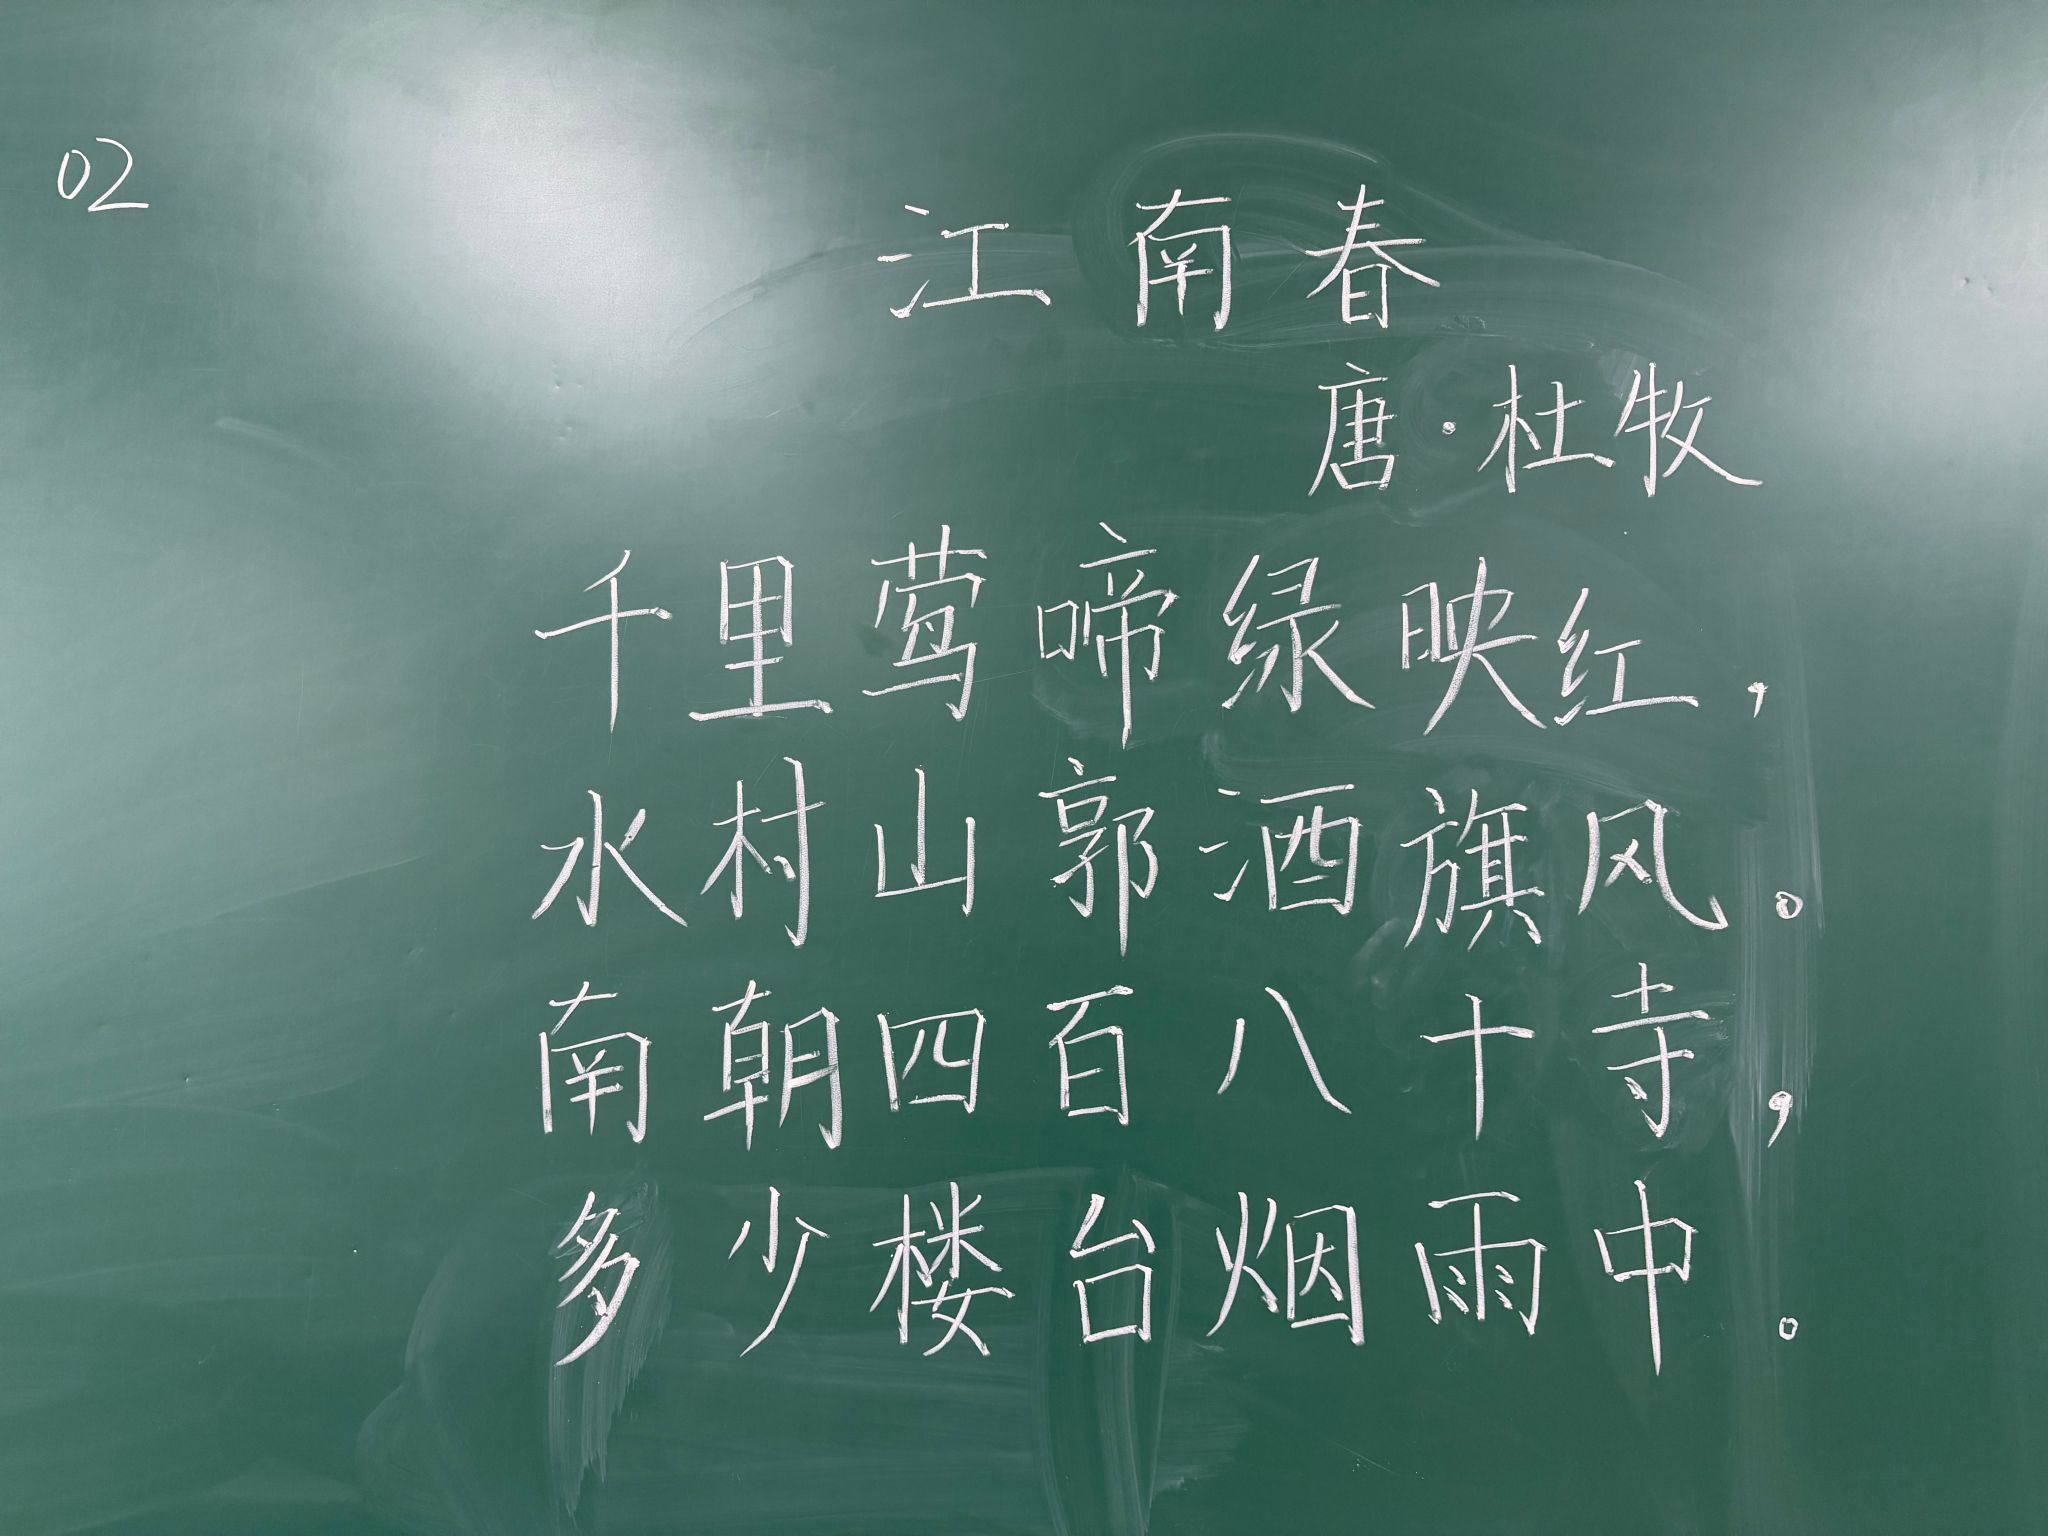 02
江南春
唐·杜牧
千里莺啼绿映红，
水村山郭酒旗风。
南朝四百八十寺，
多少楼台烟雨中。